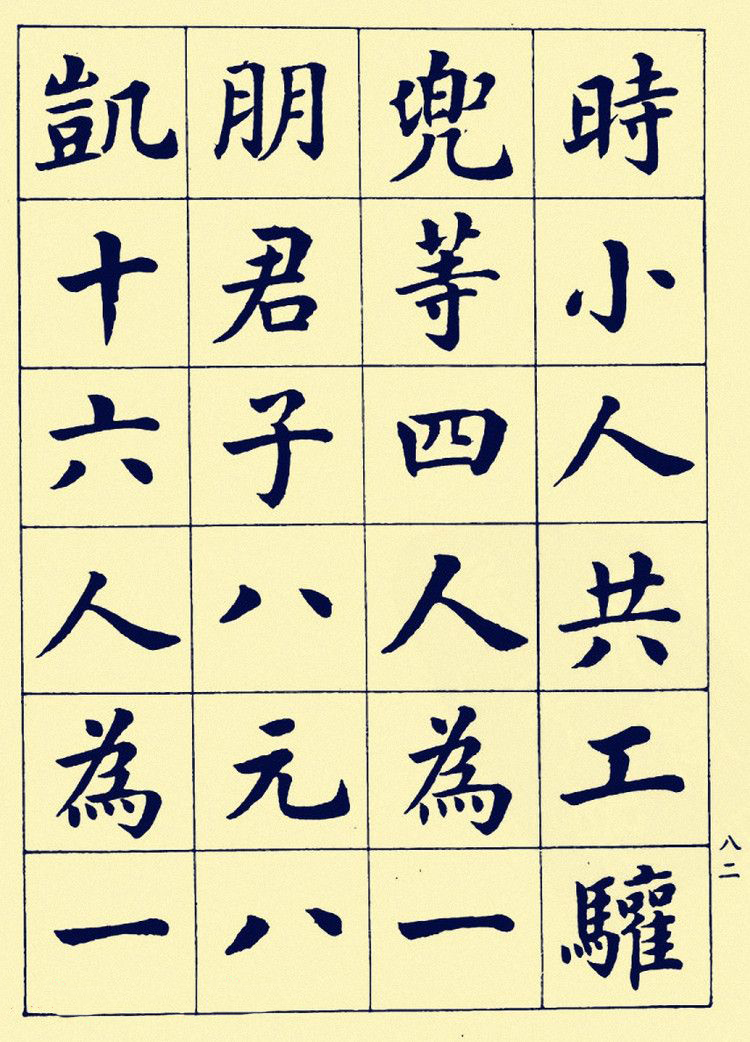 時小人共工驩
兜等四人為一
朋君子八元八
凱十六人為一
八二